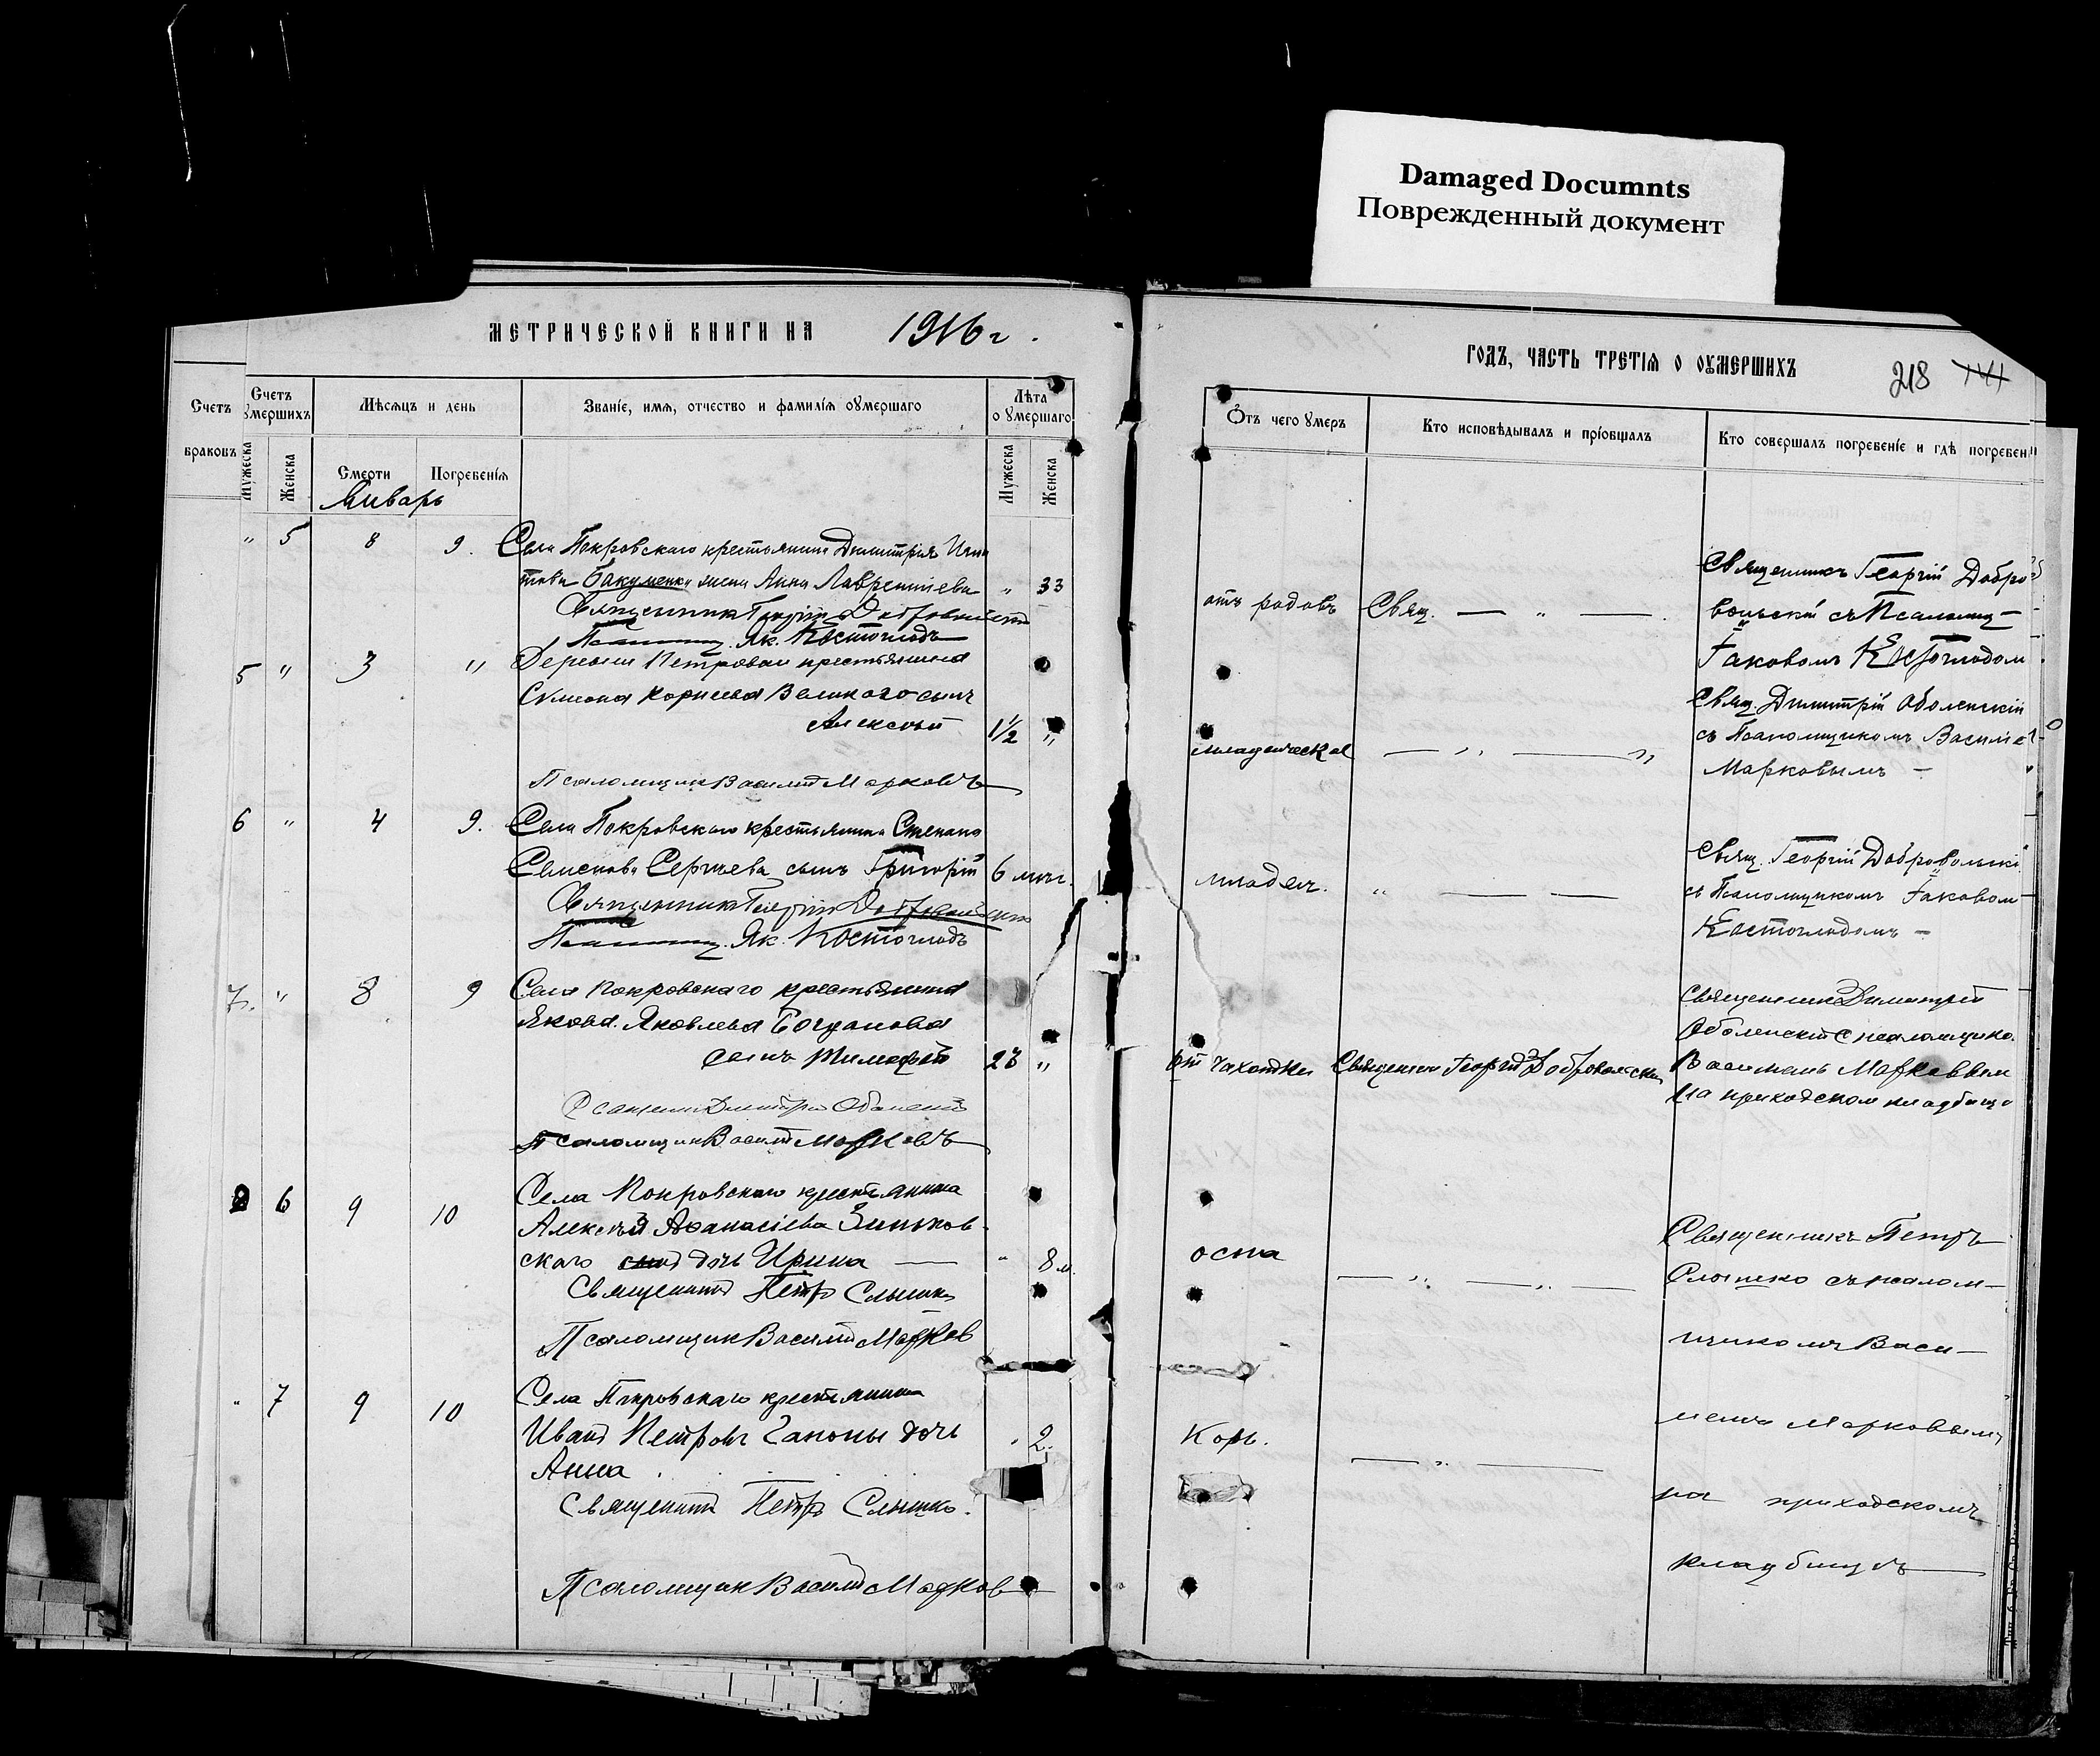 Damaged Documnts
Поврежденный документ
МЕТРИЧЕСКОЙ КНИГИ НА 1916 г.
ГОДЪ, ЧАСТЬ ТРЕТІЯ О ОУМЕРШИХЪ
218 141
Счетъ браковъ
Счетъ умершихъ
Мѣсяцъ и день
Званіе, имя, отчество и фамилія оумершаго
Лѣта оумершаго
Мужеска
Женска
Смерти
Погребенія
Мужеска
Женска
Январь
Отъ чего умеръ
Кто исповѣдывалъ и пріобщалъ
Кто совершалъ погребеніе и гдѣ погребен
" 5 8 9. Села Покровскаго крестьянина Димитрія Игна
това Бакуменки жена Анна Лаврентіева " 33
Священникъ Георгій Добровольскій
Псаломщ. Як. Костогладъ
отъ родовъ
Свящ. — " —
Священникъ Георгій Добро
вольскій съ Псаломщ—
Іаковомъ Костогладом
5 " 3 " Деревни Петровки крестьянина
Симеона Корнеева Великаго сынъ
Алексѣй 1½ "
Псаломщик Василій Марковъ
младенческая
— " — "
Свящ. Димитрій Оболенскій
съ Псаломщикомъ Василіе
Марковымъ —
6 " 4 9. Села Покровскаго крестьянина Степана
Семенова Сергѣева сынъ Григорій 6 мѣс.
Священникъ Георгій Добровольскій
Псаломщ. Як. Костогладъ
младен.
" — —
Свящ. Георгій Добровольскі
съ Псаломщикомъ Іаковом
Костогладомъ —
7. " 8 9 Села Покровскаго крестьянина
Якова Яковлева Богданова
сынъ Тимофей 23 "
Священник Дмитрій Оболенскій
Псаломщик Василій Марковъ
от чахотки
Священник Георгій Добровольский
Священник Димитрій
Оболенскій с псаломщико
Василіемъ Марковым
На приходском кладбище
6 9 10 Села Покровскаго крестьянина
Алексѣя Афанасіева Зиньков
скаго сынъ дочь Ирина — " 8 м.
Священникъ Петръ Слышко
Псаломщик Василій Марков
оспа
— " — " —
Священникъ Петръ
Слышко съ псалом—
щикомъ Васи—
" 7 9 10 Села Покровскаго крестьянина
Иванъ Петровъ Гапоны дочь " 2.
Анна
Священникъ Петръ Слышко.
Псаломщик Василій Марков
Корь.
— " —
ліемъ Марковымъ
на приходскомъ
кладбищѣ